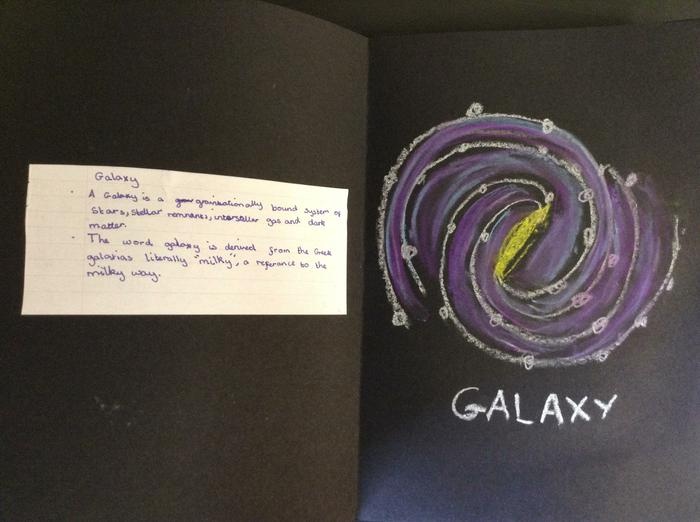 Galaxy
• A Galaxy is a granitationally bound system of
stars, stellar remnanes, interstellar gas and dark
matter.
• The word galaxy is derived from the Greek
galaxias literally "milky", a referance to the
milky way.
GALAXY